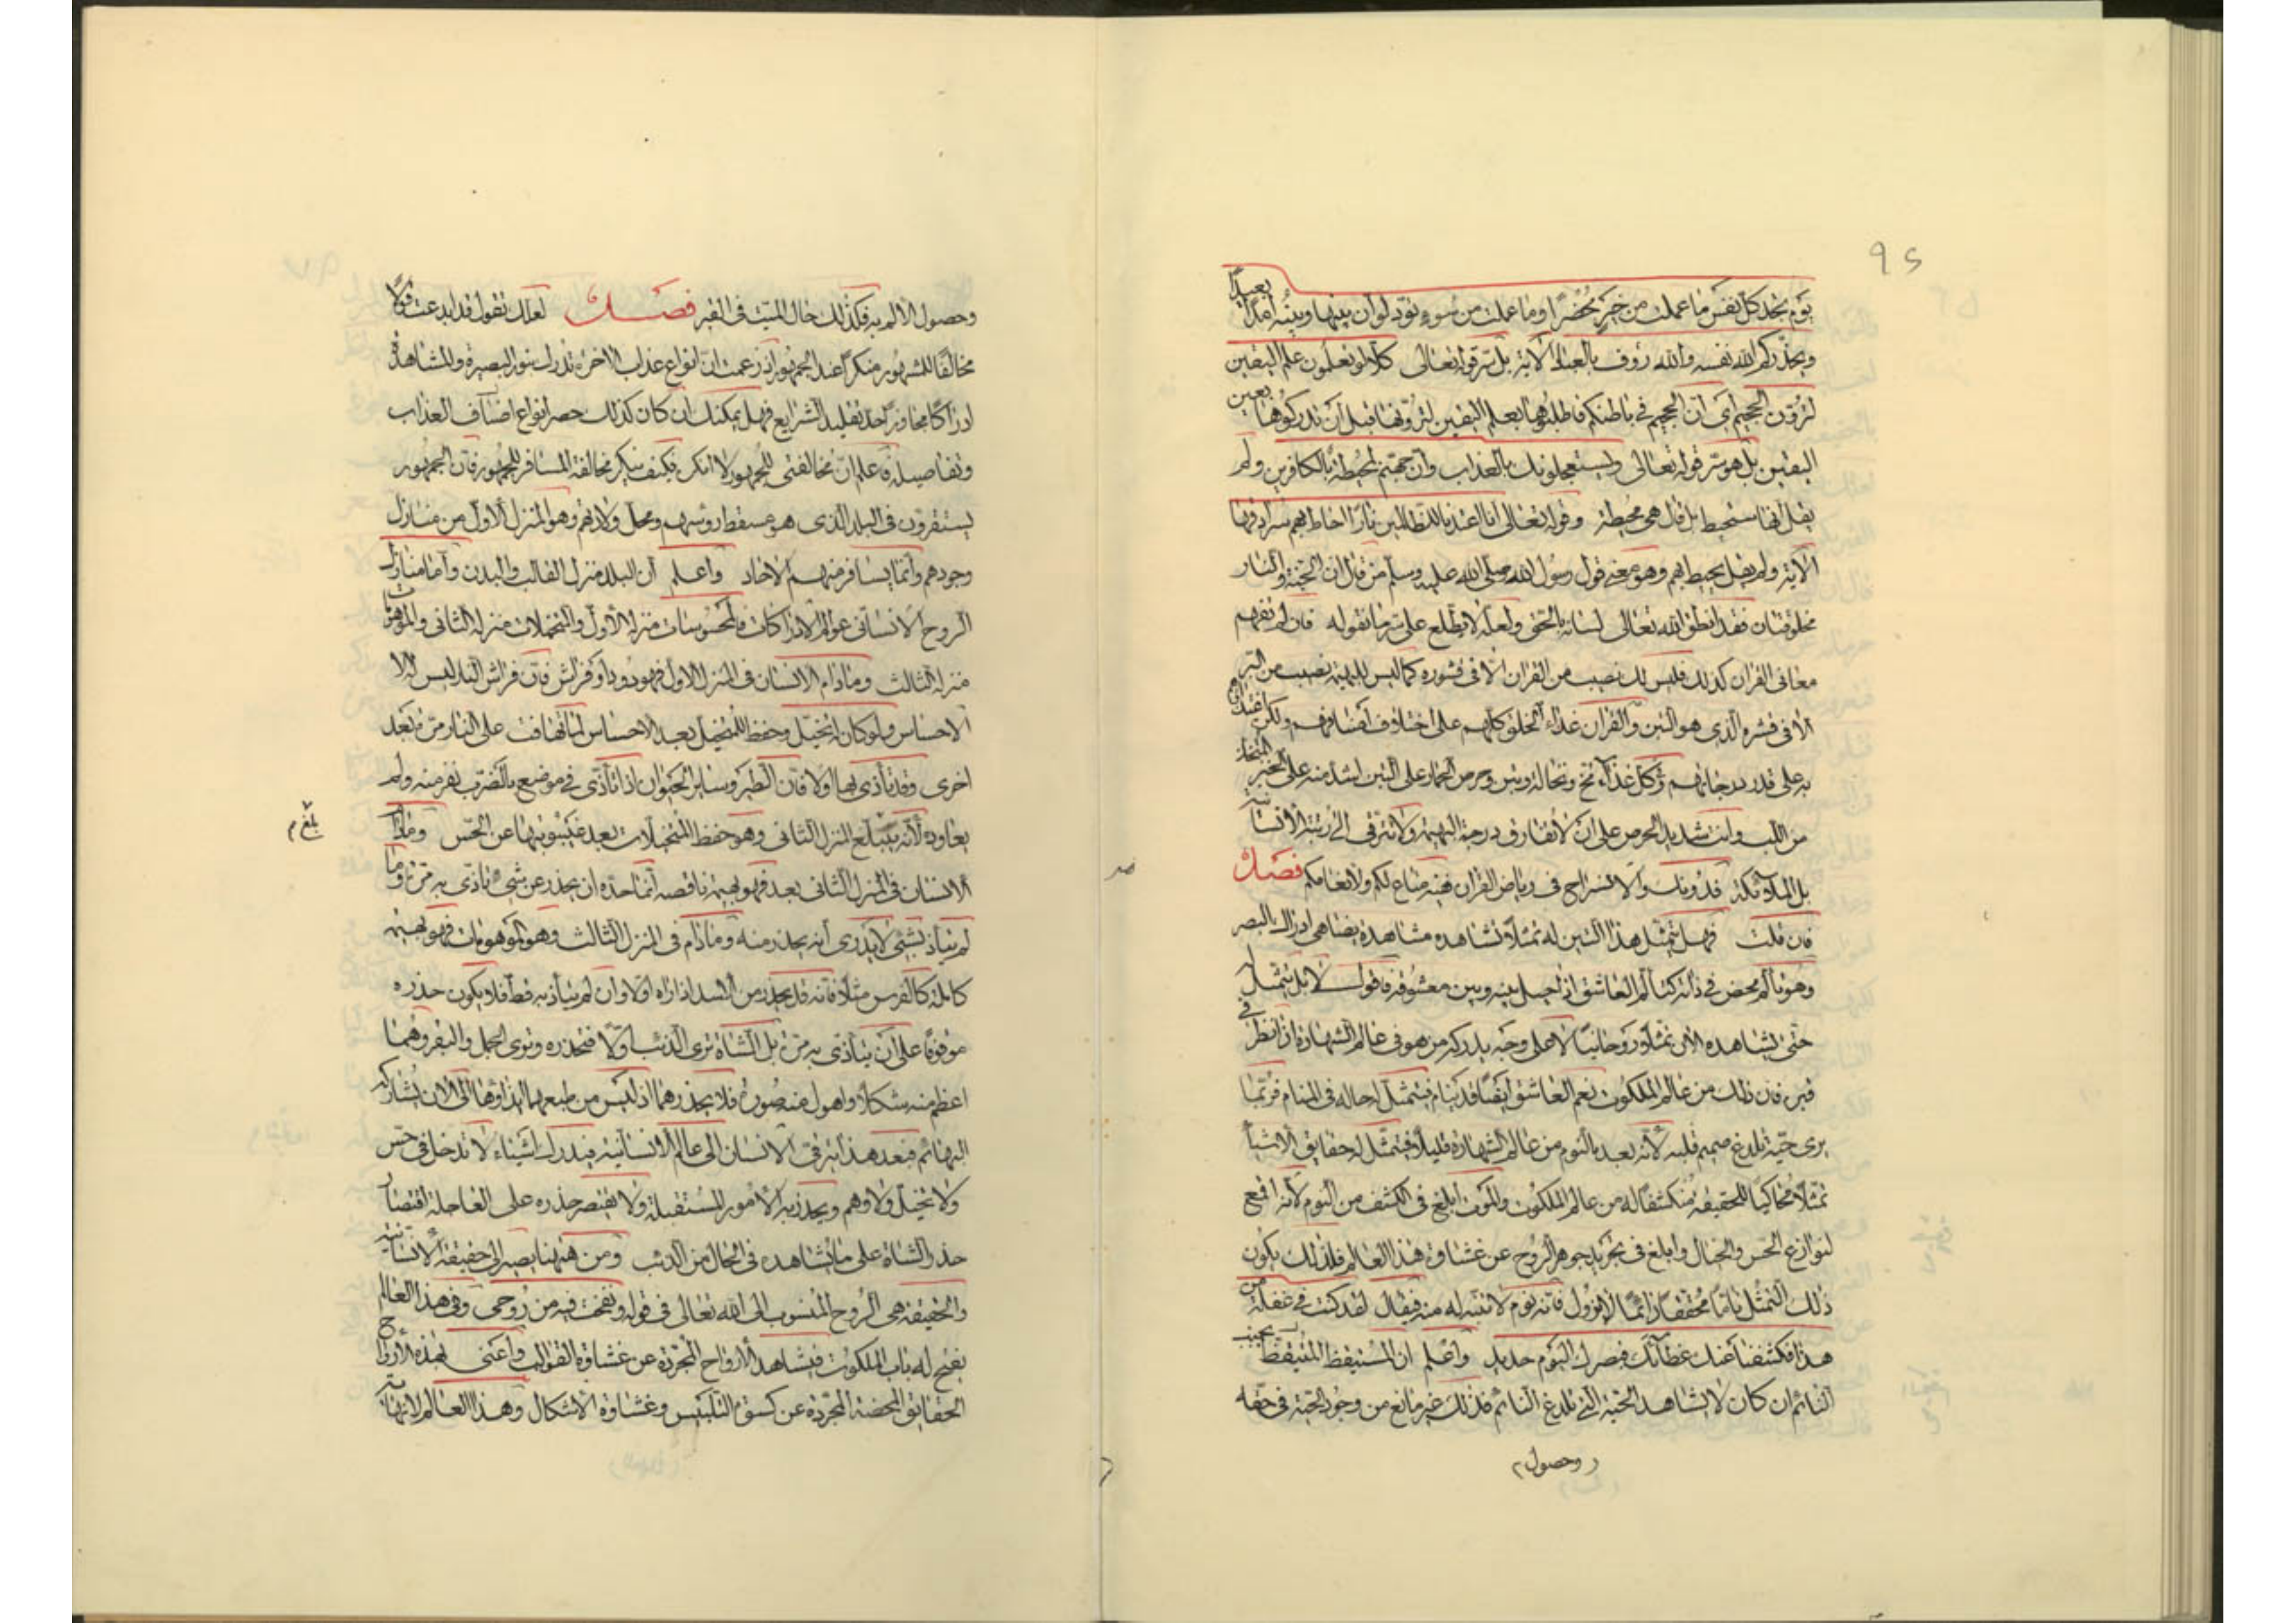 ٩٤
يوم تجد كل نفس ما عملت من خير محضرا وما عملت من سوء تود لو ان بينها وبينه امدا بعيدا
ويحذركم الله نفسه والله رؤف بالعباد الآية بل سر قوله تعالى كلا لو تعلمون علم اليقين
لترون الجحيم اى ان الجحيم فى باطنكم فاطلبوها بعلم اليقين لترونها قبل ان تدركوها بعين
اليقين بل هو سر قوله تعالى ويستعجلونك بالعذاب وان جهنم لمحيطة بالكافرين ولم
يقل انها ستحيط بل قال هى محيطة وقوله تعالى انا اعتدنا للظالمين نارا احاط بهم سرادقها
الآية ولم يقل يحيط بهم وهو معنى قول رسول الله صلى الله عليه وسلم من قال ان الجنة والنار
مخلوقتان فقد انطق الله تعالى لسانه بالحق ولعله لا يطلع على سر ما تقوله فان لم تفهم
معانى القرآن كذلك فليس لك نصيب من القرآن الا فى قشوره كما ليس للبهيمة نصيب من البر
الا فى قشره الذى هو التبن والقرآن غذاء الخلق كلهم على اختلاف اصنافهم ولكن اغتذاؤهم
به على قدر درجاتهم وكل غذاء مخ ونخالة وتبن وحرص الحمار على التبن اشد منه على الخبز المتخذ
من اللب وانت شديد الحرص على ان لا تفارق درجة البهيمة ولا تترقى الى رتبة الانسانية
بل الملائكة فدونك والانسراح فى رياض القرآن ففيه متاع لكم ولانعامكم فصل
فان قلت فهل يتمثل هذا التنين له تمثلا تشاهده مشاهدة يضاهى ادراك البصر
وهو تألم محض فى ذاته كتألم العاشق اذا حيل بينه وبين معشوقه فاقول لا بل يتمثل له
حتى يشاهده الان تمثلا روحانيا لا على وجه يدركه من هو فى عالم الشهادة اذا نظر فى
قبره فان ذلك من عالم الملكوت نعم العاشق ايضا قد ينام فيتمثل له حاله فى المنام فربما
يرى حية تلدغ صميم قلبه لانه بعد بالنوم من عالم الشهادة قليلا فيتمثل له حقايق الاشياء
تمثلا محاكيا للحقيقة منكشفا له من عالم الملكوت والموت ابلغ فى الكشف من النوم لانه اقمع
لنوازع الحس والخيال وابلغ فى تجريد جوهر الروح عن غشاوة هذا العالم فلذلك يكون
ذلك التمثل تاما محققا دائما لا يزول فانه نوم لا تنبه له منه فيقال لقد كنت فى غفلة من
هذا فكشفنا عنك غطاءك فبصرك اليوم حديد واعلم ان المستيقظ المتيقظ بجنب
النائم ان كان لا يشاهد الحية التى تلدغ النائم فذلك غير مانع من وجود الحية فى حقه
وحصول
وحصول الالم به فكذلك حال الميت فى القبر فصل لعلك تقول قد ابدعت قولا
مخالفا للمشهور منكرا عند الجمهور اذ زعمت ان انواع عذاب الآخرة تدرك بنور البصيرة والمشاهدة
ادراكا مجاوزا حد تقليد الشرايع فهل يمكنك ان كان كذلك حصر انواع اصناف العذاب
وتفاصيله فاعلم ان مخالفتى للجمهور لا انكره فكيف ينكر مخالفة المسافر للجمهور فان الجمهور
يستقرون فى البلد الذى هو مسقط رؤسهم ومحل ولادتهم وهو المنزل الاول من منازل
وجودهم وانما يسافر منهم الاحاد واعلم ان البلد منزل القالب والبدن واما منازل
الروح الانسانى عوالم الادراكات فالمحسوسات منزله الاول والمتخيلات منزله الثانى والموهومات
منزله الثالث وما دام الانسان فى المنزل الاول فهو دود او فراش فان فراش النار ليس له الا
الاحساس ولو كان له تخيل وحفظ للمتخيل بعد الاحساس لما تهافت على النار مرة بعد
اخرى وقد تأذى بها اولا فان الطير وساير الحيوان اذا تأذى فى موضع بالضرب نفر منه ولم
يعاوده لانه يبلغ المنزل الثانى وهو حفظ المتخيلات بعد غيبوبتها عن الحس وما دام
الانسان فى المنزل الثانى بعد فهو بهيمة ناقصه انما حده ان يحذر عن شئ تأذى به مرة وما
لم يتأذ بشئ لا يدرى أنه يحذر منه وما دام فى المنزل الثالث وهو الموهومات فهو بهيمة
كاملة كالفرس مثلا فانه قد يحذر من الاسد اذا رآه اولا وان لم يتأذ به قط فلا يكون حذره
موقوفا على ان يتأذى به مرة بل الشاة ترى الذئب اولا فتحذره وترى الجمل والبقر وهما
اعظم منه شكلا واهول منه صورة فلا يحذرهما اذ ليس من طبعهما ايذاؤها الى الان يشارك
البهائم فبعد هذا يترقى الانسان الى عالم الانسانية فيدرك اشياء لا تدخل فى حس
ولا تخيل ولا وهم ويحذر به الامور المستقبلة ولا يقتصر حذره على العاجلة اقتصار
حذر الشاة على ما تشاهده فى الحال من الذئب ومن ههنا يصير الى حقيقة الانسانية
والحقيقة هى الروح المنسوب الى الله تعالى فى قوله ونفخت فيه من روحى وفى هذا العالم
يفتح له باب الملكوت فيشاهد الارواح المجردة عن غشاوة القوالب واعنى بهذه الارواح
الحقايق المحضة المجردة عن كسوة التلبيس وغشاوة الاشكال وهذا العالم لا نهاية
بلغ